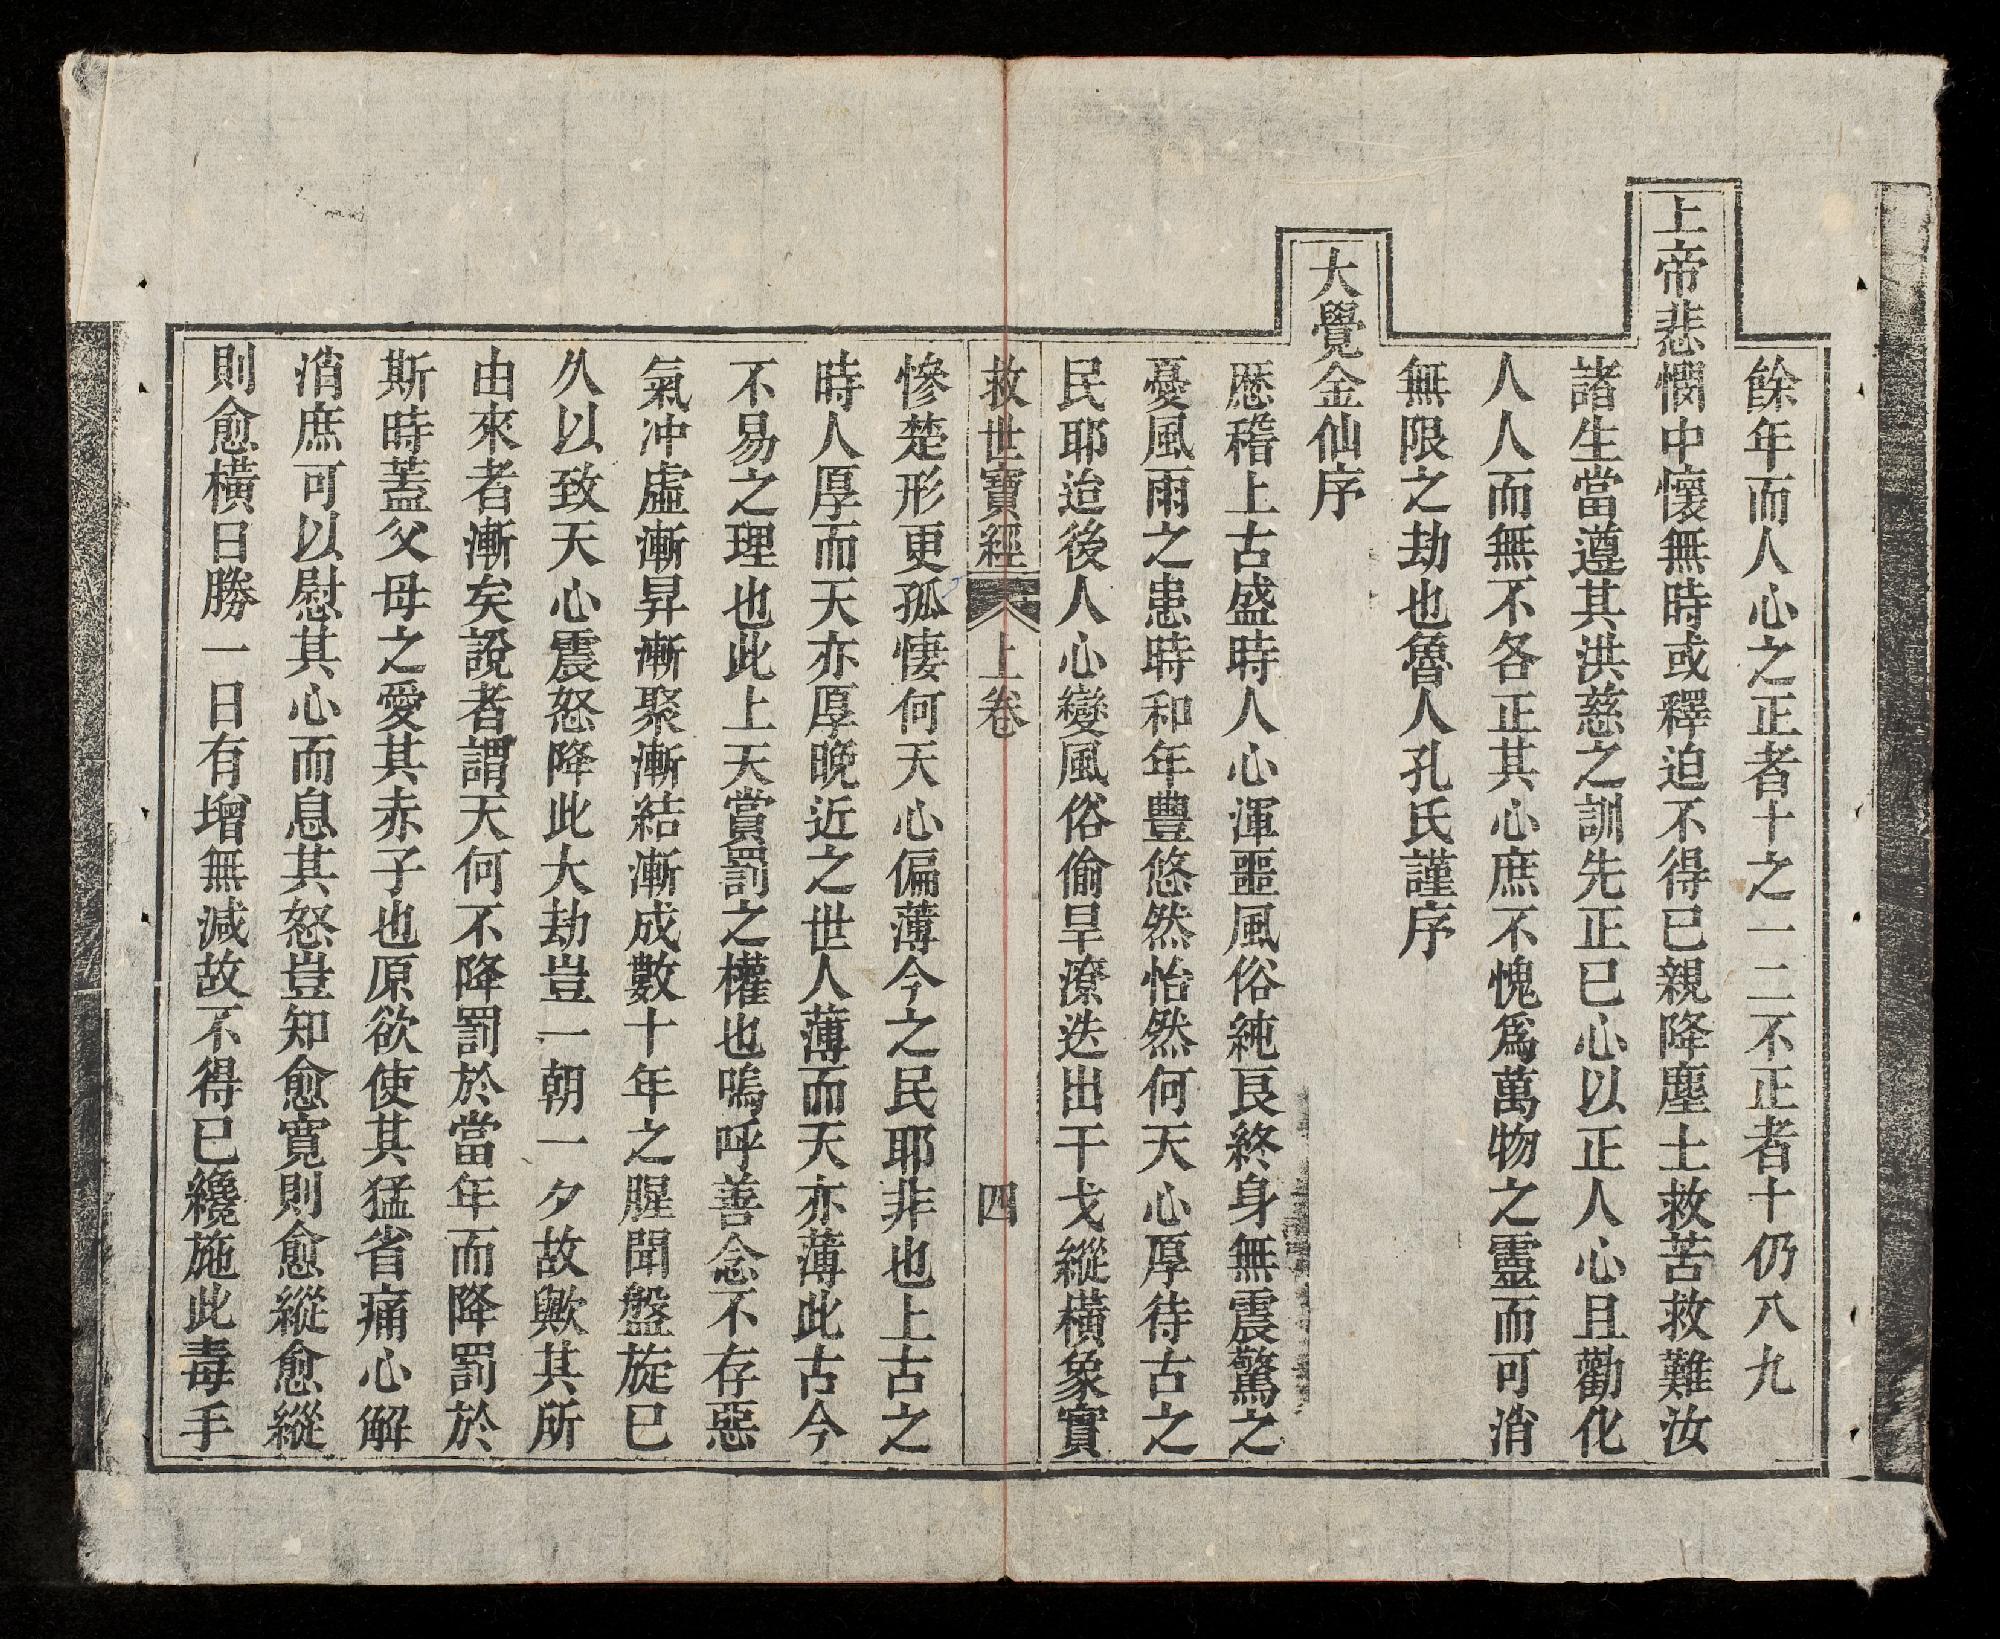 餘年而人心之正者十之一二不正者十仍八九
上帝悲憫中懷無時或釋迫不得已親降塵土救苦救難汝
諸生當遵其洪慈之訓先正已心以正人心且勸化
人人而無不各正其心庶不愧爲萬物之靈而可消
無限之劫也魯人孔氏謹序
大覺金仙序
歷稽上古盛時人心渾噩風俗純良終身無震驚之
憂風雨之患時和年豐悠然怡然何天心厚待古之
民耶迨後人心變風俗偷旱潦迭出干戈縱橫象實
救世寶經 上卷 四
慘楚形更孤悽何天心偏薄今之民耶非也上古之
時人厚而天亦厚晚近之世人薄而天亦薄此古今
不易之理也此上天賞罰之權也嗚呼善念不存惡
氣冲虛漸昇漸聚漸結漸成數十年之腥聞盤旋已
久以致天心震怒降此大劫豈一朝一夕故歟其所
由來者漸矣說者謂天何不降罰於當年而降罰於
斯時蓋父母之愛其赤子也原欲使其猛省痛心解
消庶可以慰其心而息其怒豈知愈寬則愈縱愈縱
則愈橫日勝一日有增無減故不得已纔施此毒手